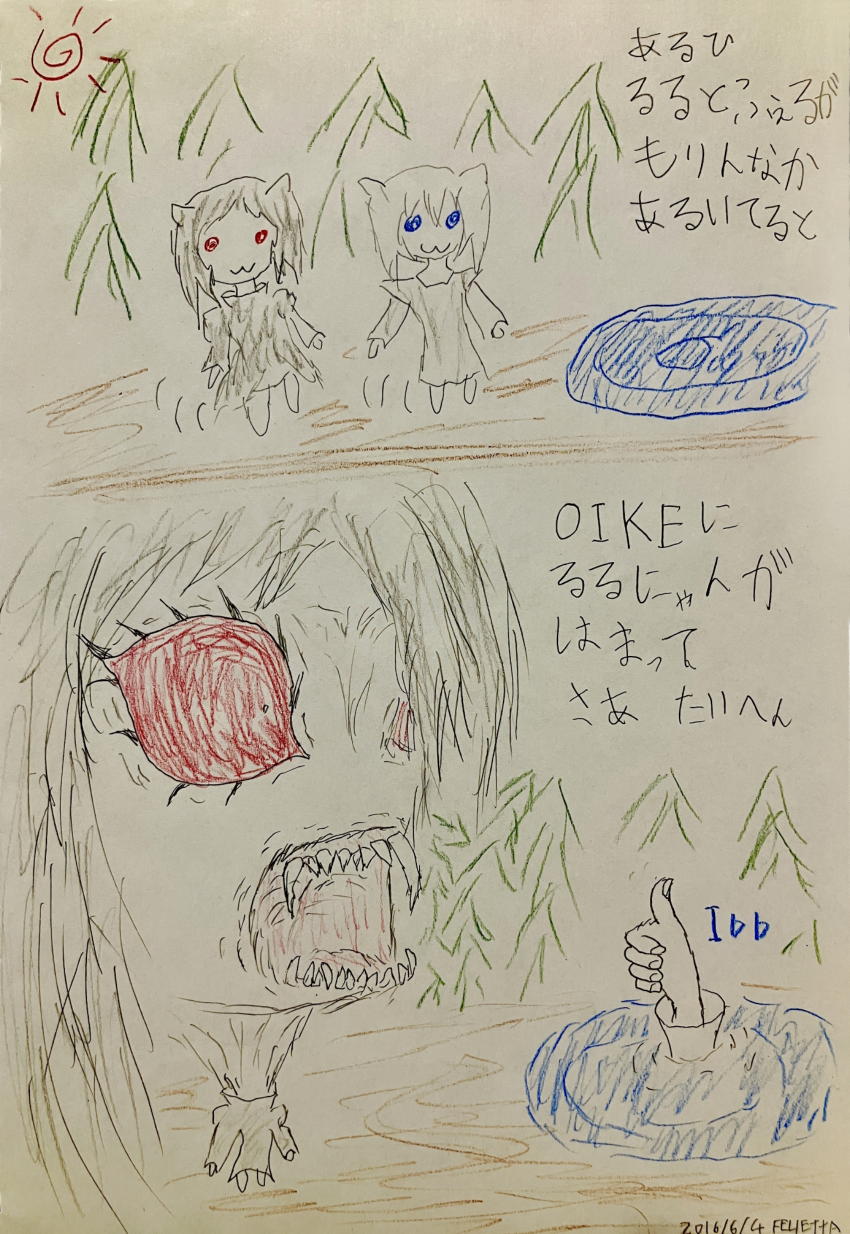 あるひ
るるとふぇるが
もりんなか
あるいてると
OIKEに
るるにゃんが
はまって
さあ たいへん
Ibb
2016/6/4 FELIETTA